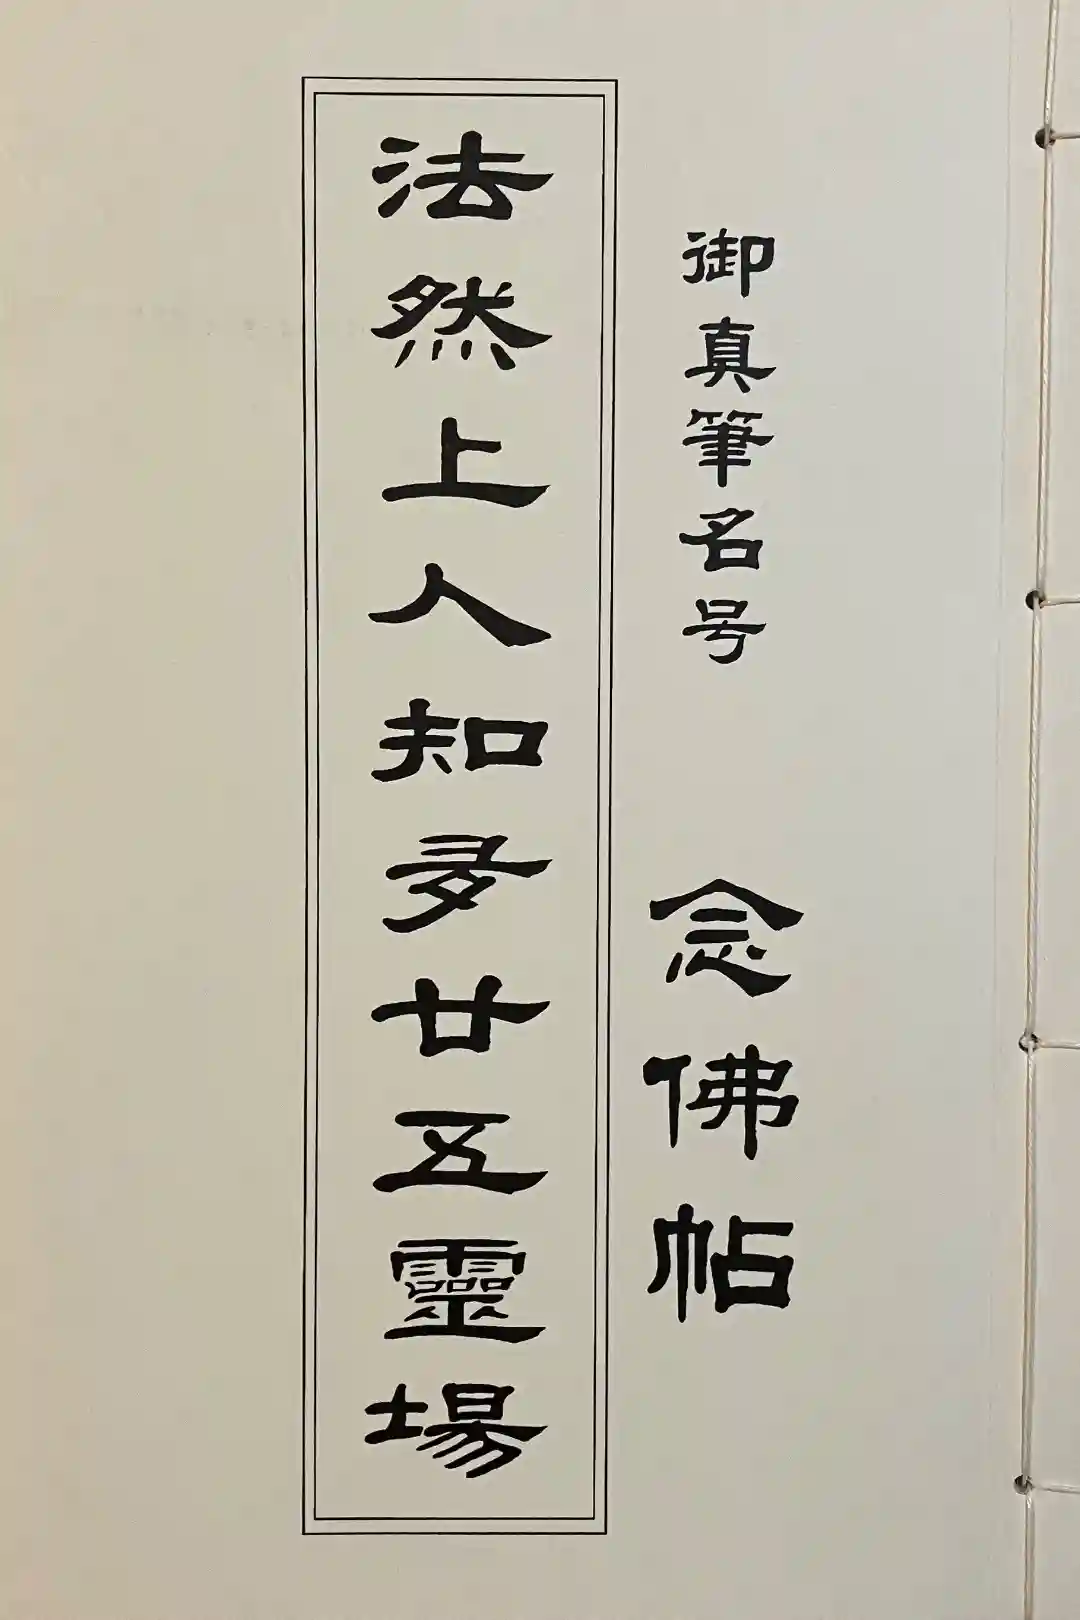 御真筆名号　念佛帖
法然上人知夛廿五靈場